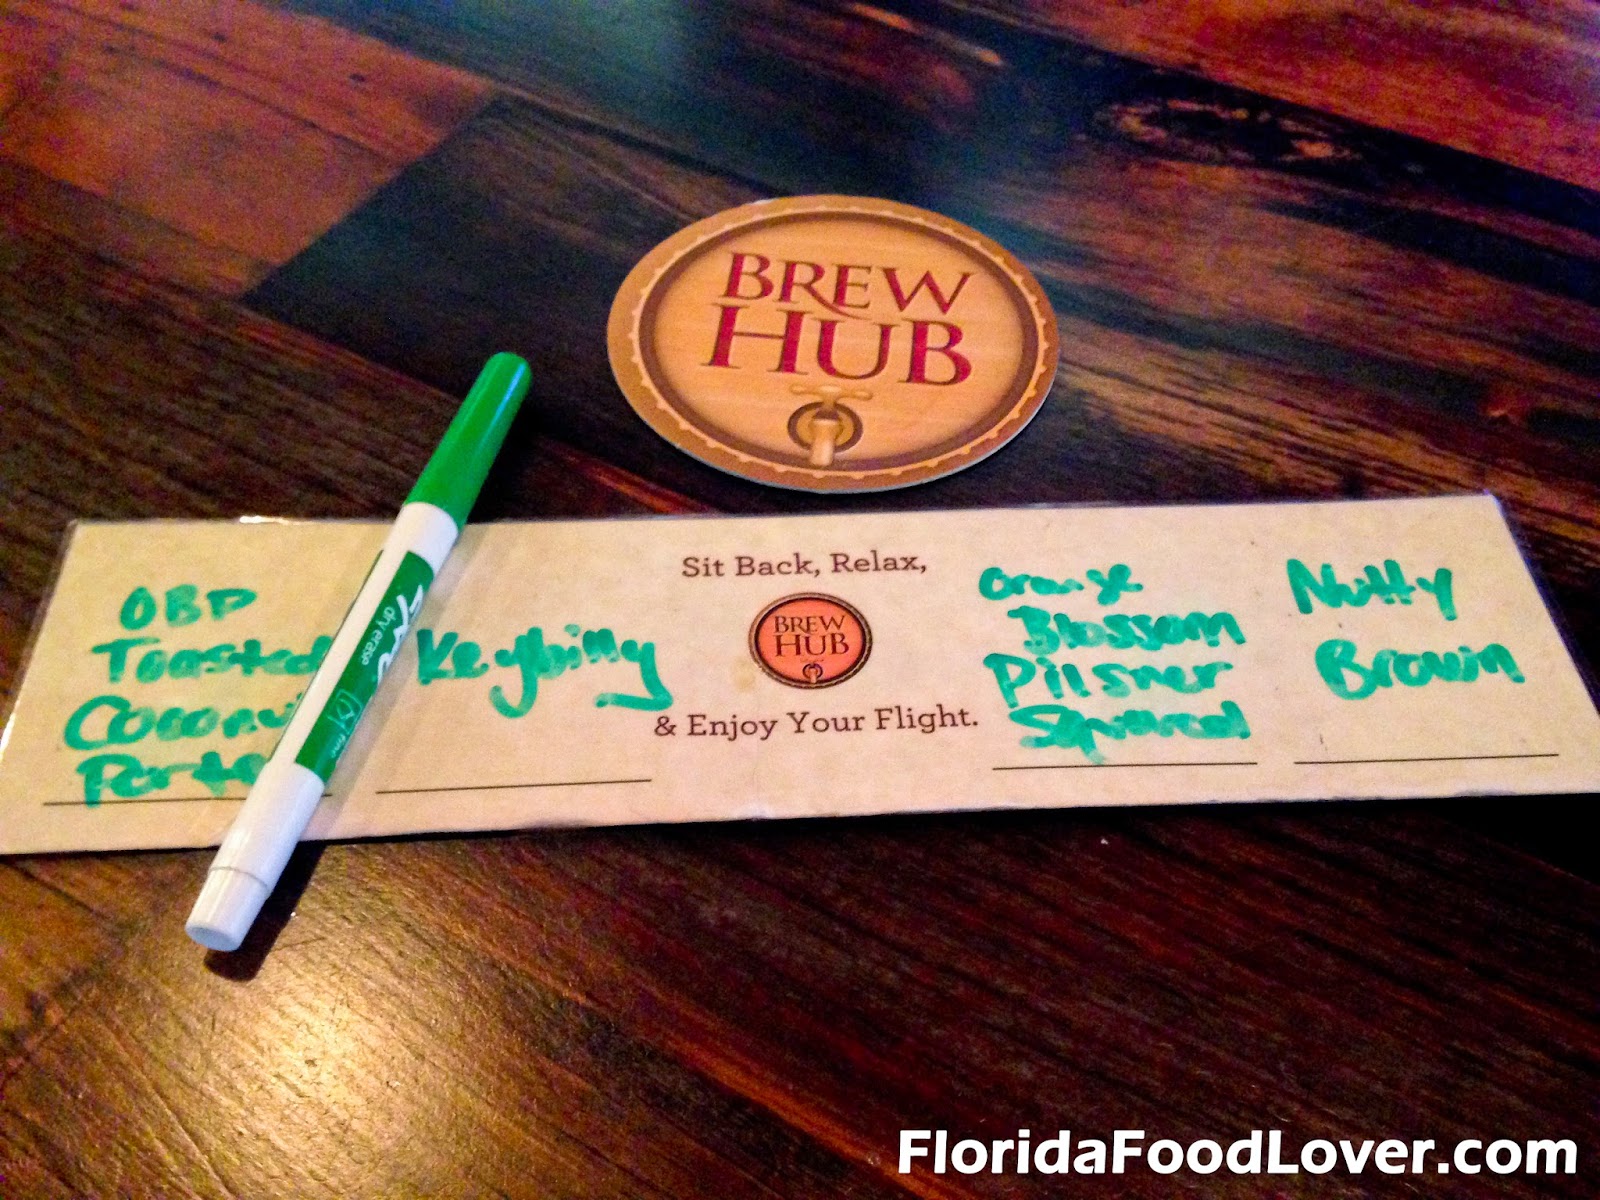 BREW
HUB
Sit Back, Relax,
BREW
HUB
& Enjoy Your Flight.
OBP
Toasted
Coconu
Porte
Keybilly
Orange
Blossom
Pilsner
Squared
Nutty
Brown
dry erase
FloridaFoodLover.com